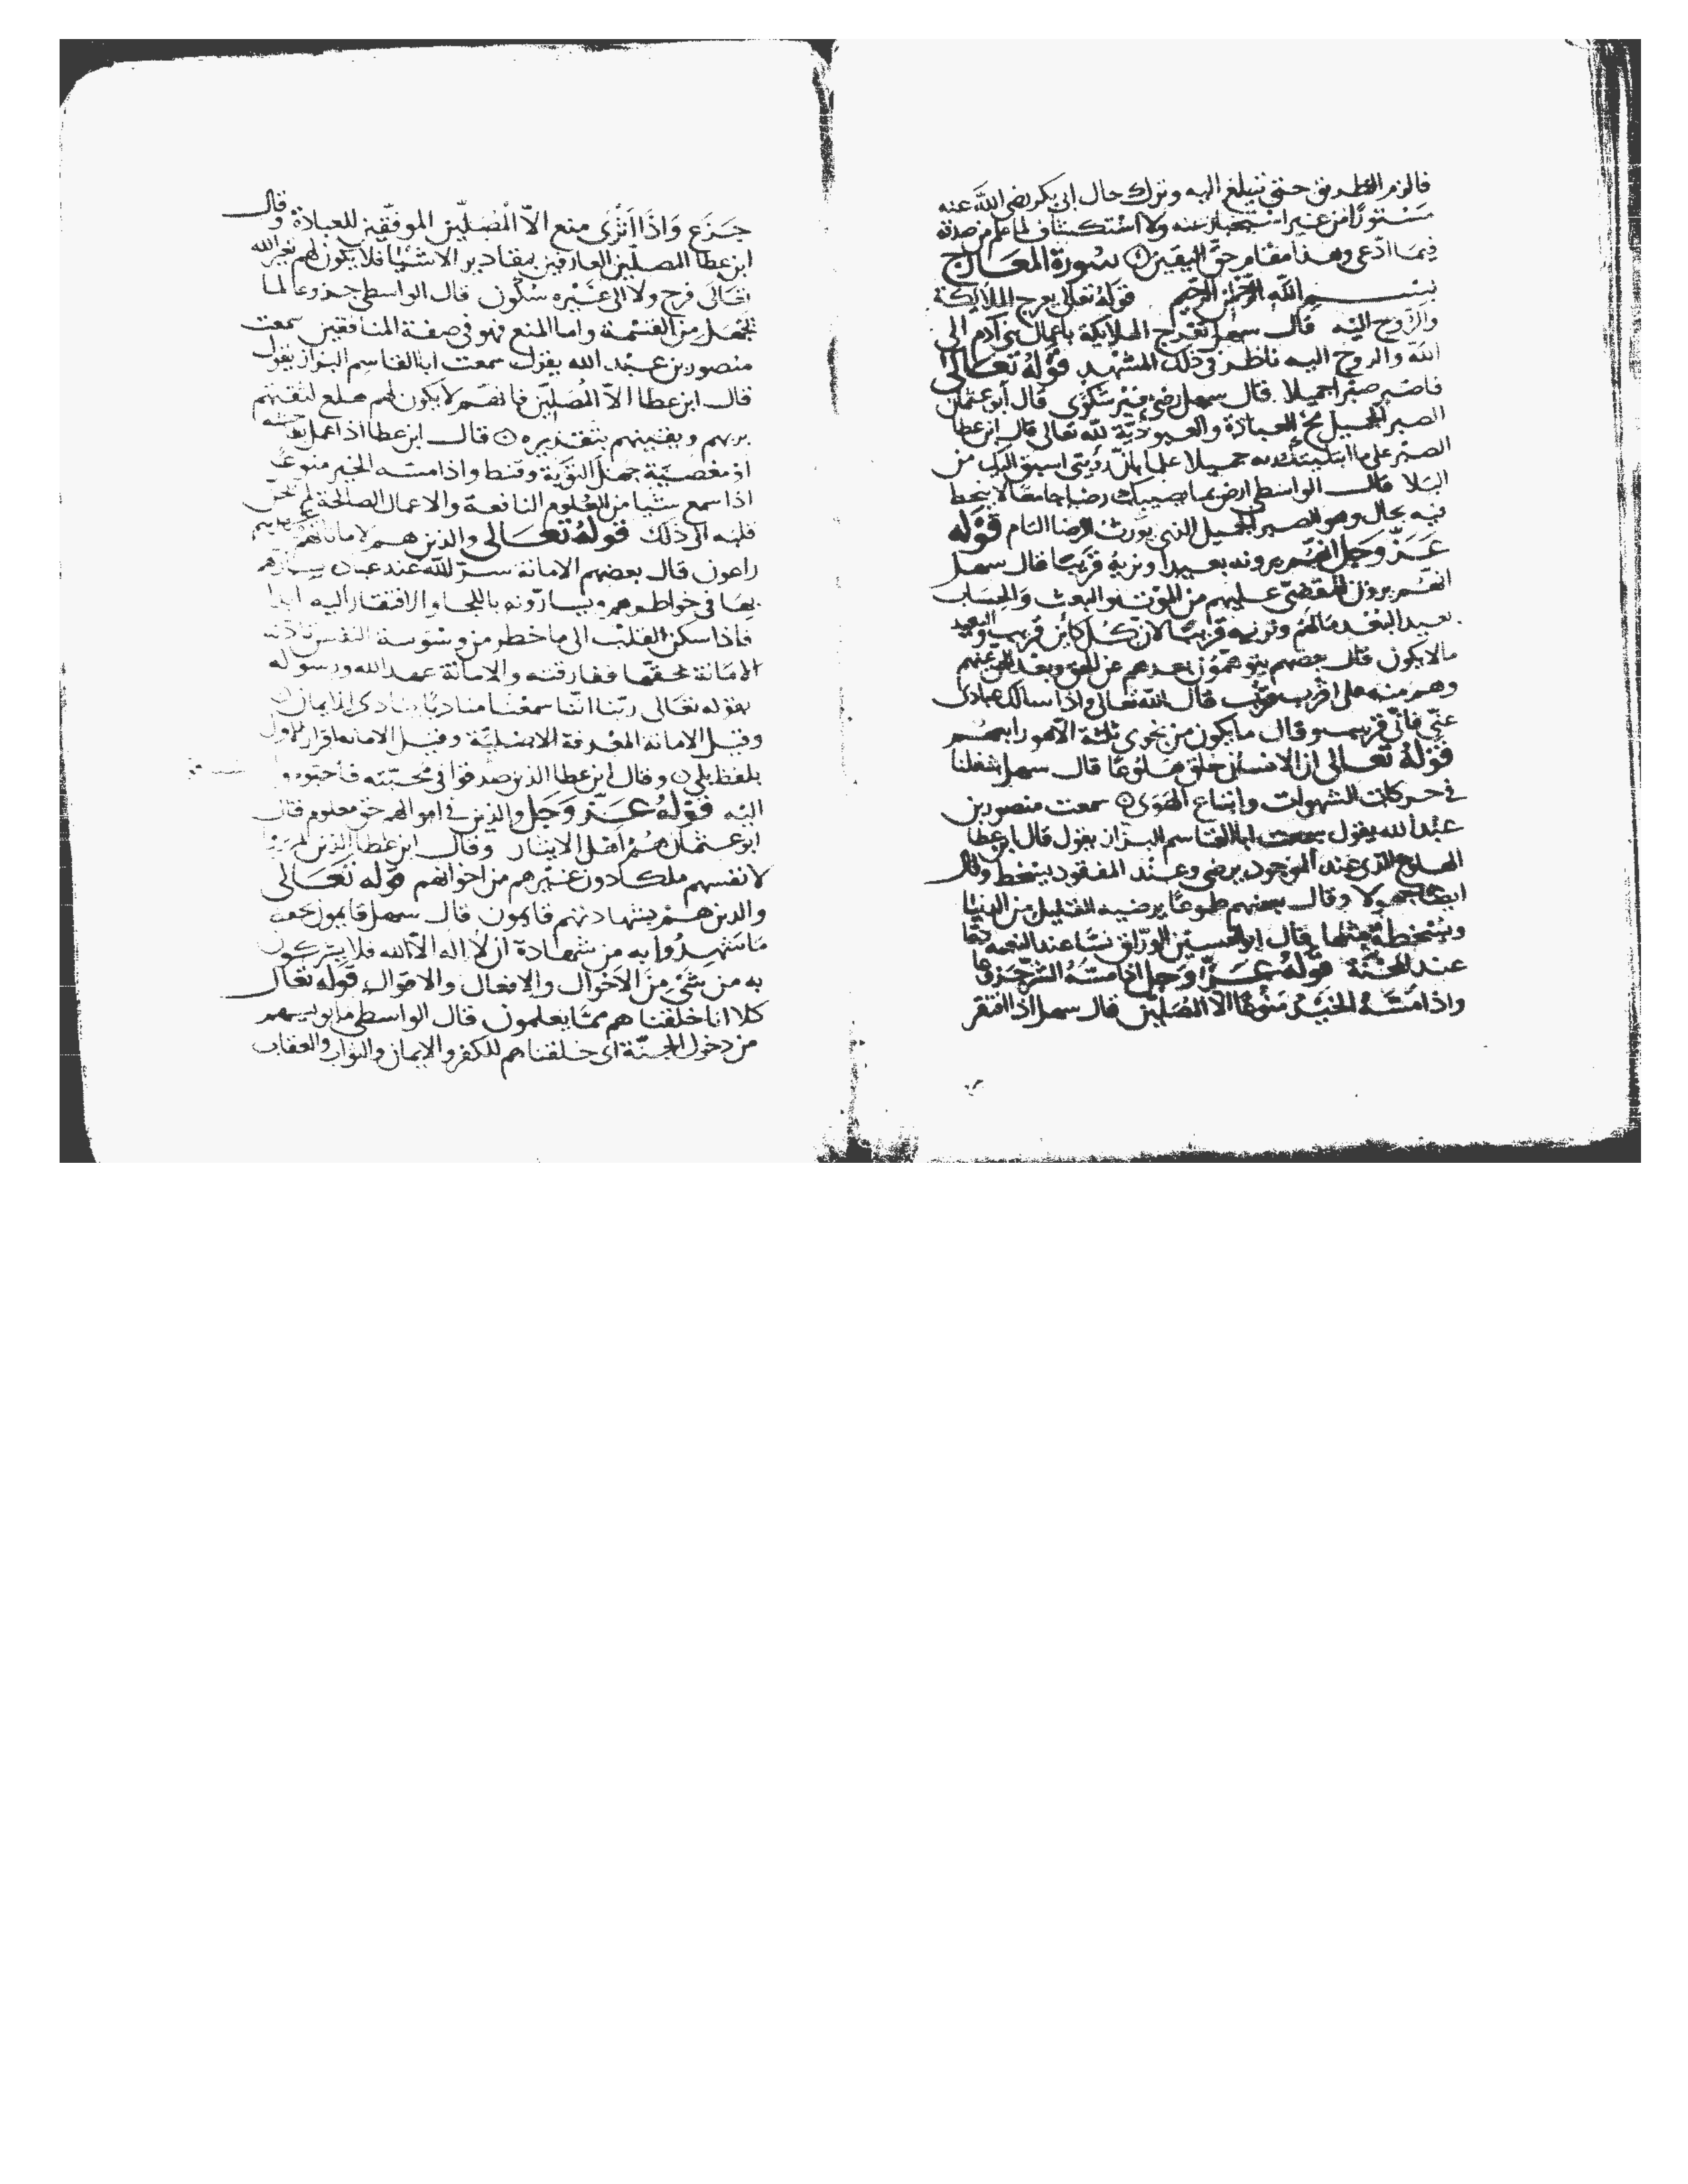 فالزم الطريق حتى تبلغ اليه وترك حال ابى بكر رضى الله عنه
مستورا من غير استخبار عنه ولا استكشاف لما علم من صدقه
فيما ادعى وهذا مقام حق اليقين سورة المعارج
بسم الله الرحمن الرحيم قوله تعالى يعرج الملايكة
والروح اليه قال سهل تعرج الملايكة باعمال بنى آدم الى
الله والروح اليه ناظر فى ذلك المشهد قوله تعالى
فاصبر صبرا جميلا قال سهل رضى بغير شكوى قال ابو عثمان
الصبر الجميل العبادة والعبودية لله تعالى قال ابن عطا
الصبر على ما ابتليتك به جميلا علما بان رؤيتى اسبق اليك من
البلا قال الواسطى ارض بما يصيبك رضا جامعا لا يسخط
فيه بحال وهو الصبر الجميل الذى يورث الرضا التام قوله
عز وجل انهم يرونه بعيدا ونريه قريبا قال سهل
انهم يرون المقضى عليهم من الموت والبعث والحساب
بعيدا لبعد آمالهم ونريه قريبا لان كل كاين قريب والبعيد
ما لا يكون قال بعضهم يتوهمون بعدهم عن الحق وبعد الحق عنهم
وهم منه على اقرب قال الله تعالى واذا سالك عبادى
عنى فانى قريب وقال ما يكون من نجوى ثلثة الا هو رابعهم
قوله تعالى ان الانسان خلق هلوعا قال سهل
فى حركات الشهوات واتباع الهوى سمعت منصور بن
عبد الله يقول سمعت ابا القاسم البزاز يقول قال ابن عطا
الهلوع الذى عند الموجود يرضى وعند المفقود يسخط وقال
ايضا جهولا وقال بعضهم طموعا يرضيه القليل من الدنيا
ويسخطه مثلها قال ابو الحسين الوراق عند النعمة
عند المحنة قوله عز وجل اذا مسه الشر جزوعا
واذا مسه الخير منوعا الا المصلين قال سهل اذا افتقر
جزع واذا اثرى منع الا المصلين الموفقين للعبادة وقال
ابن عطا المصلين العارفين بمقادير الاشيا فلا يكون لهم بغير الله
تعالى فرح ولا الى غيره سكون قال الواسطى جزوعا لما
يجهل من القسمة واما المنع فهو فى صفة المنافقين سمعت
منصور بن عبد الله يقول سمعت ابا القاسم البزاز يقول
قال ابن عطا الا المصلين فانهم لا يكون لهم هلع لثقتهم
بربهم ويقينهم بتقديره قال ابن عطا اذا عمل
او معصية جهل التوبة وقنط واذا مسه الخير منوعا
اذا سمع شيا من العلوم النافعة والاعمال الصالحة لم
قلبه الى ذلك قوله تعالى والذين هم لاماناتهم وعهدهم
راعون قال بعضهم الامانة سر لله عند عباده يسارهم
بها فى خواطرهم ويسارونه باللجا والافتقار اليه ابدا
فاذا سكن القلب الى ما خطر من وسوسة النفس
الامانة فقارقته والامانة عهد الله ورسوله
بقوله تعالى ربنا اننا سمعنا مناديا ينادى للايمان
وقيل الامانة المعرفة الاصلية وقيل الامانة اقرار الاول
بلفظ بلى وقال ابن عطا الذين صدقوا فى محبته فاحبوه و
اليه قوله عز وجل والذين فى اموالهم حق معلوم قال
ابو عثمان هم اهل الايثار وقال ابن عطا الذين لم يروا
لانفسهم ملكا دون غيرهم من اخوانهم قوله تعالى
والذين هم بشهادتهم قايمون قال سهل قايمون بحفظ
ما شهدوا به من شهادة ان لا اله الا الله فلا يشركون
به من شىء من الاحوال والافعال والاقوال قوله تعالى
كلا انا خلقناهم مما يعلمون قال الواسطى ما يويسهم
من دخول الجنة اى خلقناهم للكفر والايمان والثواب والعقاب